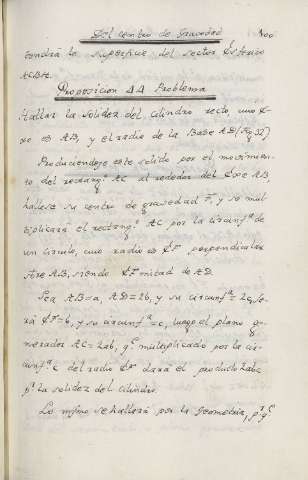 Del centro de Gravedad 100
tendrá la superficie del sector
ACBH.
Proposicion 44 Problema
Hallar la solidez del cilindro recto cuio E-
xe es AB, y el radio de la Base AD (Fig 32)
Produciendose este solido por el movimien-
to del rectang.º AC al rededor del Exe AB
hallese su centro de gravedad F, y se mul-
tiplicará el rectang.º AC por la circunf.ª de
un circulo, cuio radio es EF perpendicular
AB, siendo EF mitad de AD.
Sea AB=a, AD=2b, y su circunf.ª = 2c, Se-
rá EF=b, y su circunf.ª =c, luego el plano g-
nerador AC=2ab, q.e multiplicado por la cir-
cunf.ª c del radio EF dará el producto 2abc
p.r la solidez del cilindro.
Lo mismo se hallerá por la Geometria, p.r q.e